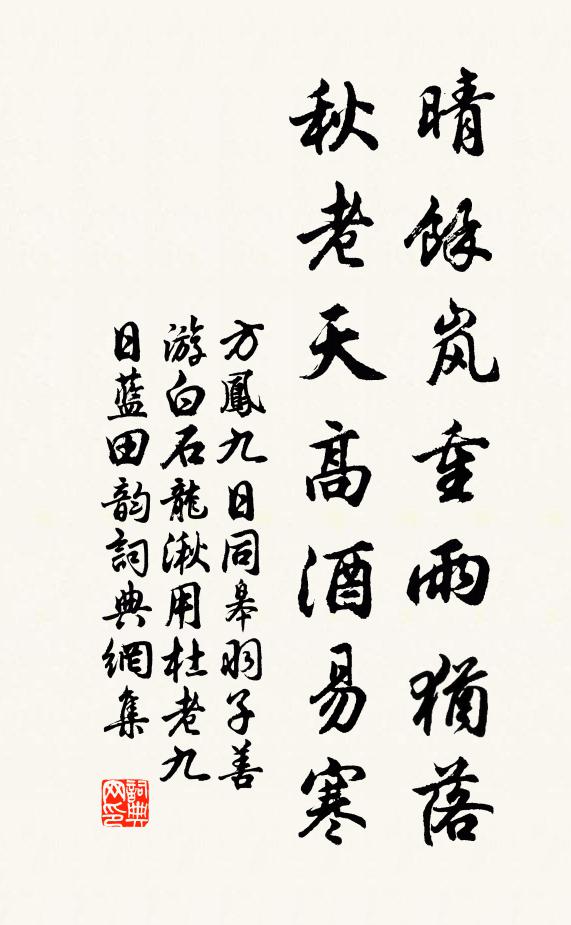 晴餘岚重雨猶落
秋老天高酒易寒
方鳳九日同皋羽子善
游白石龍湫用杜老九
日藍田韵詞典網集
詞典网印